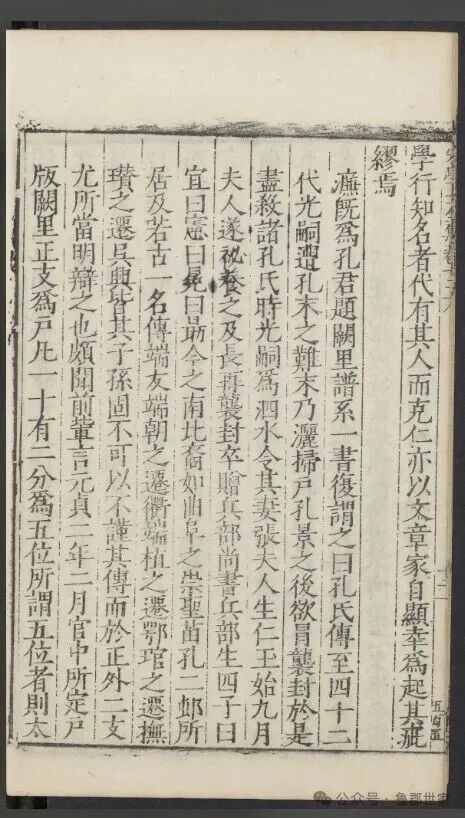 學行知名者代有其人而克仁亦以文章家自顯幸為起其疵
繆焉
濂既為孔君題闕里譜系一書復謂之曰孔氏傳至四十二
代光嗣遭孔末之難末乃灑掃戶孔景之後欲冒襲封於是
盡殺諸孔氏時光嗣為泗水令其妻張夫人生仁玉始九月
夫人遂祕養之及長再襲封卒贈兵部尚書兵部生四子曰
宜曰憲曰冕曰勗今之南北裔如曲阜之崇聖苗孔二邨所
居及若古一名傳端友端朝之遷衢端植之遷鄂琯之遷撫
瓚之遷吳興皆其子孫固不可以不謹其傳而於正外二支
尤所當明辯之也頗聞前輩言元貞二年二月官中所定戶
版闕里正支為戶凡一十有二分為五位所謂五位者則太
公众号·鲁郡世家